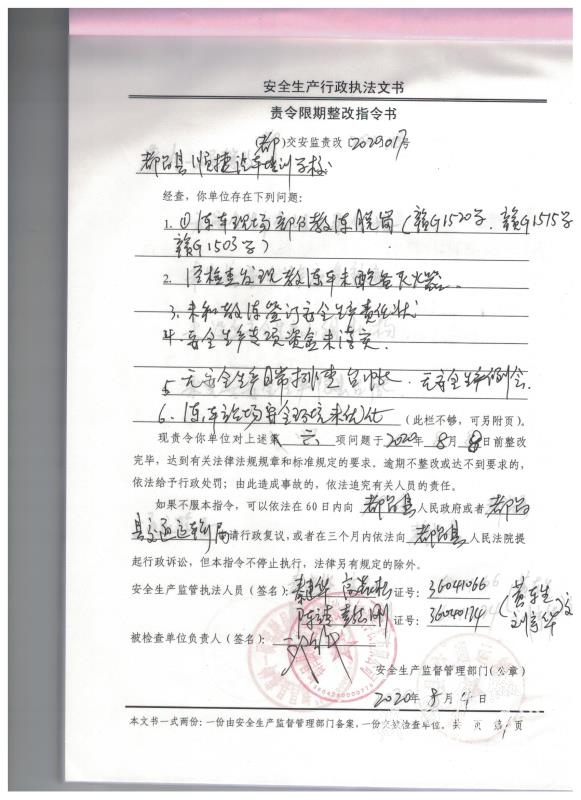 安全生产行政执法文书
责令限期整改指令书
(都)交安监责改[2020]017号
都昌县恒捷汽车培训学校
经查,你单位存在下列问题:
1. ①练车现场部分教练脱岗(赣G1520学、赣G1515学
赣G1503学)
2. 经检查发现教练车未配备灭火器.
3. 未和教练签订安全生产责任状
4. 安全生产专项资金未落实.
5 无安全生产日常排查台账、无安全生产例会.
6. 练车站场安全环境未优化 (此栏不够,可另附页)。
现责令你单位对上述第 六 项问题于 2020 年 8 月 8 日前整改
完毕,达到有关法律法规规章和标准规定的要求。逾期不整改或达不到要求的,
依法给予行政处罚;由此造成事故的,依法追究有关人员的责任。
如果不服本指令,可以依法在60日内向 都昌县 人民政府或者 都昌
县交通运输局 请行政复议,或者在三个月内依法向 都昌县 人民法院提
起行政诉讼,但本指令不停止执行,法律另有规定的除外。
安全生产监管执法人员(签名): 证号:36041066
证号:36040174
被检查单位负责人(签名):
安全生产监督管理部门(公章)
2020年8月4日
本文书一式两份:一份由安全生产监督管理部门备案,一份交被检查单位。共 页 第1页